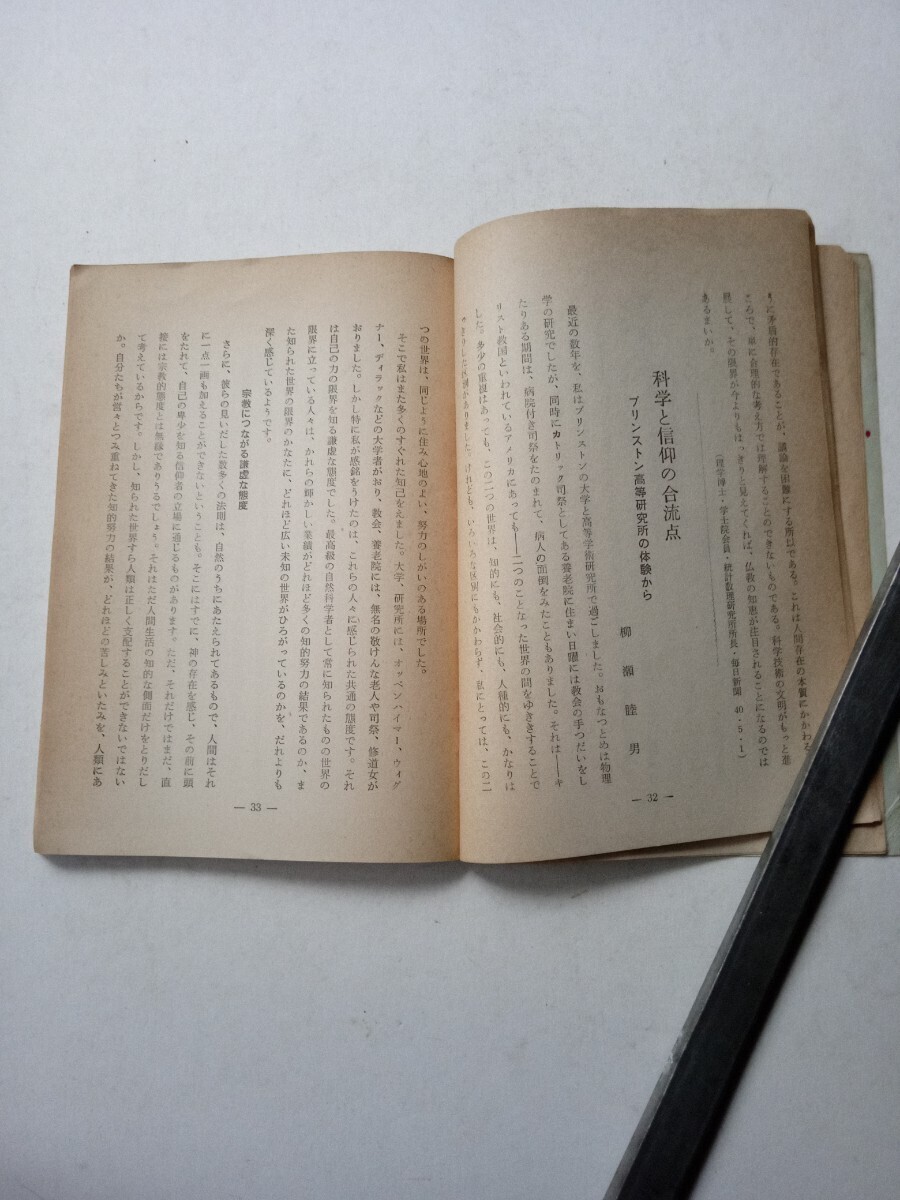 りに矛盾的存在であることが、議論を困難にする所以である。これは人間存在の本質にかかわる
ころで、単に合理的な考え方では理解することのできないものである。科学技術の文明がもっと進
展して、その限界が今よりもはっきりと見えてくれば、仏教の知恵が注目されることになるのでは
あるまいか。
(理学博士・学士院会員・統計数理研究所所長・毎日新聞 40・5・1)
科学と信仰の合流点
プリンストン高等研究所の体験から
柳瀬睦男
最近の数年を、私はプリンストンの大学と高等学術研究所で過ごしました。おもなつとめは物理
学の研究でしたが、同時にカトリック司祭としてある養老院に住まい日曜には教会の手つだいをし
たりある期間は、病院付き司祭をたのまれて、病人の面倒をみたこともありました。それは――キ
リスト教国といわれているアメリカにあっても――二つのことなった世界の間をゆききすることで
した。多少の重複はあっても、この二つの世界は、知的にも、社会的にも、人種的にも、かなりは
っきりした区別がありました。けれども、いろいろな区別にもかかわらず、私にとっては、この二
― 32 ―
つの世界は、同じように住み心地のよい、努力のしがいのある場所でした。
そこで私はまた多くのすぐれた知己をえました。大学、研究所には、オッペンハイマー、ウィグ
ナー、ディラックなどの大学者がおり、教会、養老院には、無名の敬けんな老人や司祭、修道女が
おりました。しかし特に私が感銘をうけたのは、これらの人々に感じられた共通の態度です。それ
は自己の力の限界を知る謙虚な態度でした。最高級の自然科学者として常に知られたものの世界の
限界に立っている人々は、かれらの輝かしい業績がどれほど多くの知的努力の結果であるのか、ま
た知られた世界の限界のかなたに、どれほど広い未知の世界がひろがっているのかを、だれよりも
深く感じているようです。
宗教につながる謙虚な態度
さらに、彼らの見いだした数多くの法則は、自然のうちにあたえられてあるもので、人間はそれ
に一点一画も加えることができないということも。そこにはすでに、神の存在を感じ、その前に頭
をたれて、自己の卑少を知る信仰者の立場に通じるものがあります。ただ、それだけではまだ、直
接には宗教的態度とは無縁でありうるでしょう。それはただ人間生活の知的な側面だけをとりだし
て考えているからです。しかし、知られた世界すら人類は正しく支配することができないではない
か。自分たちが営々とつみ重ねてきた知的努力の結果が、どれほどの苦しみといたみを、人類にあ
― 33 ―